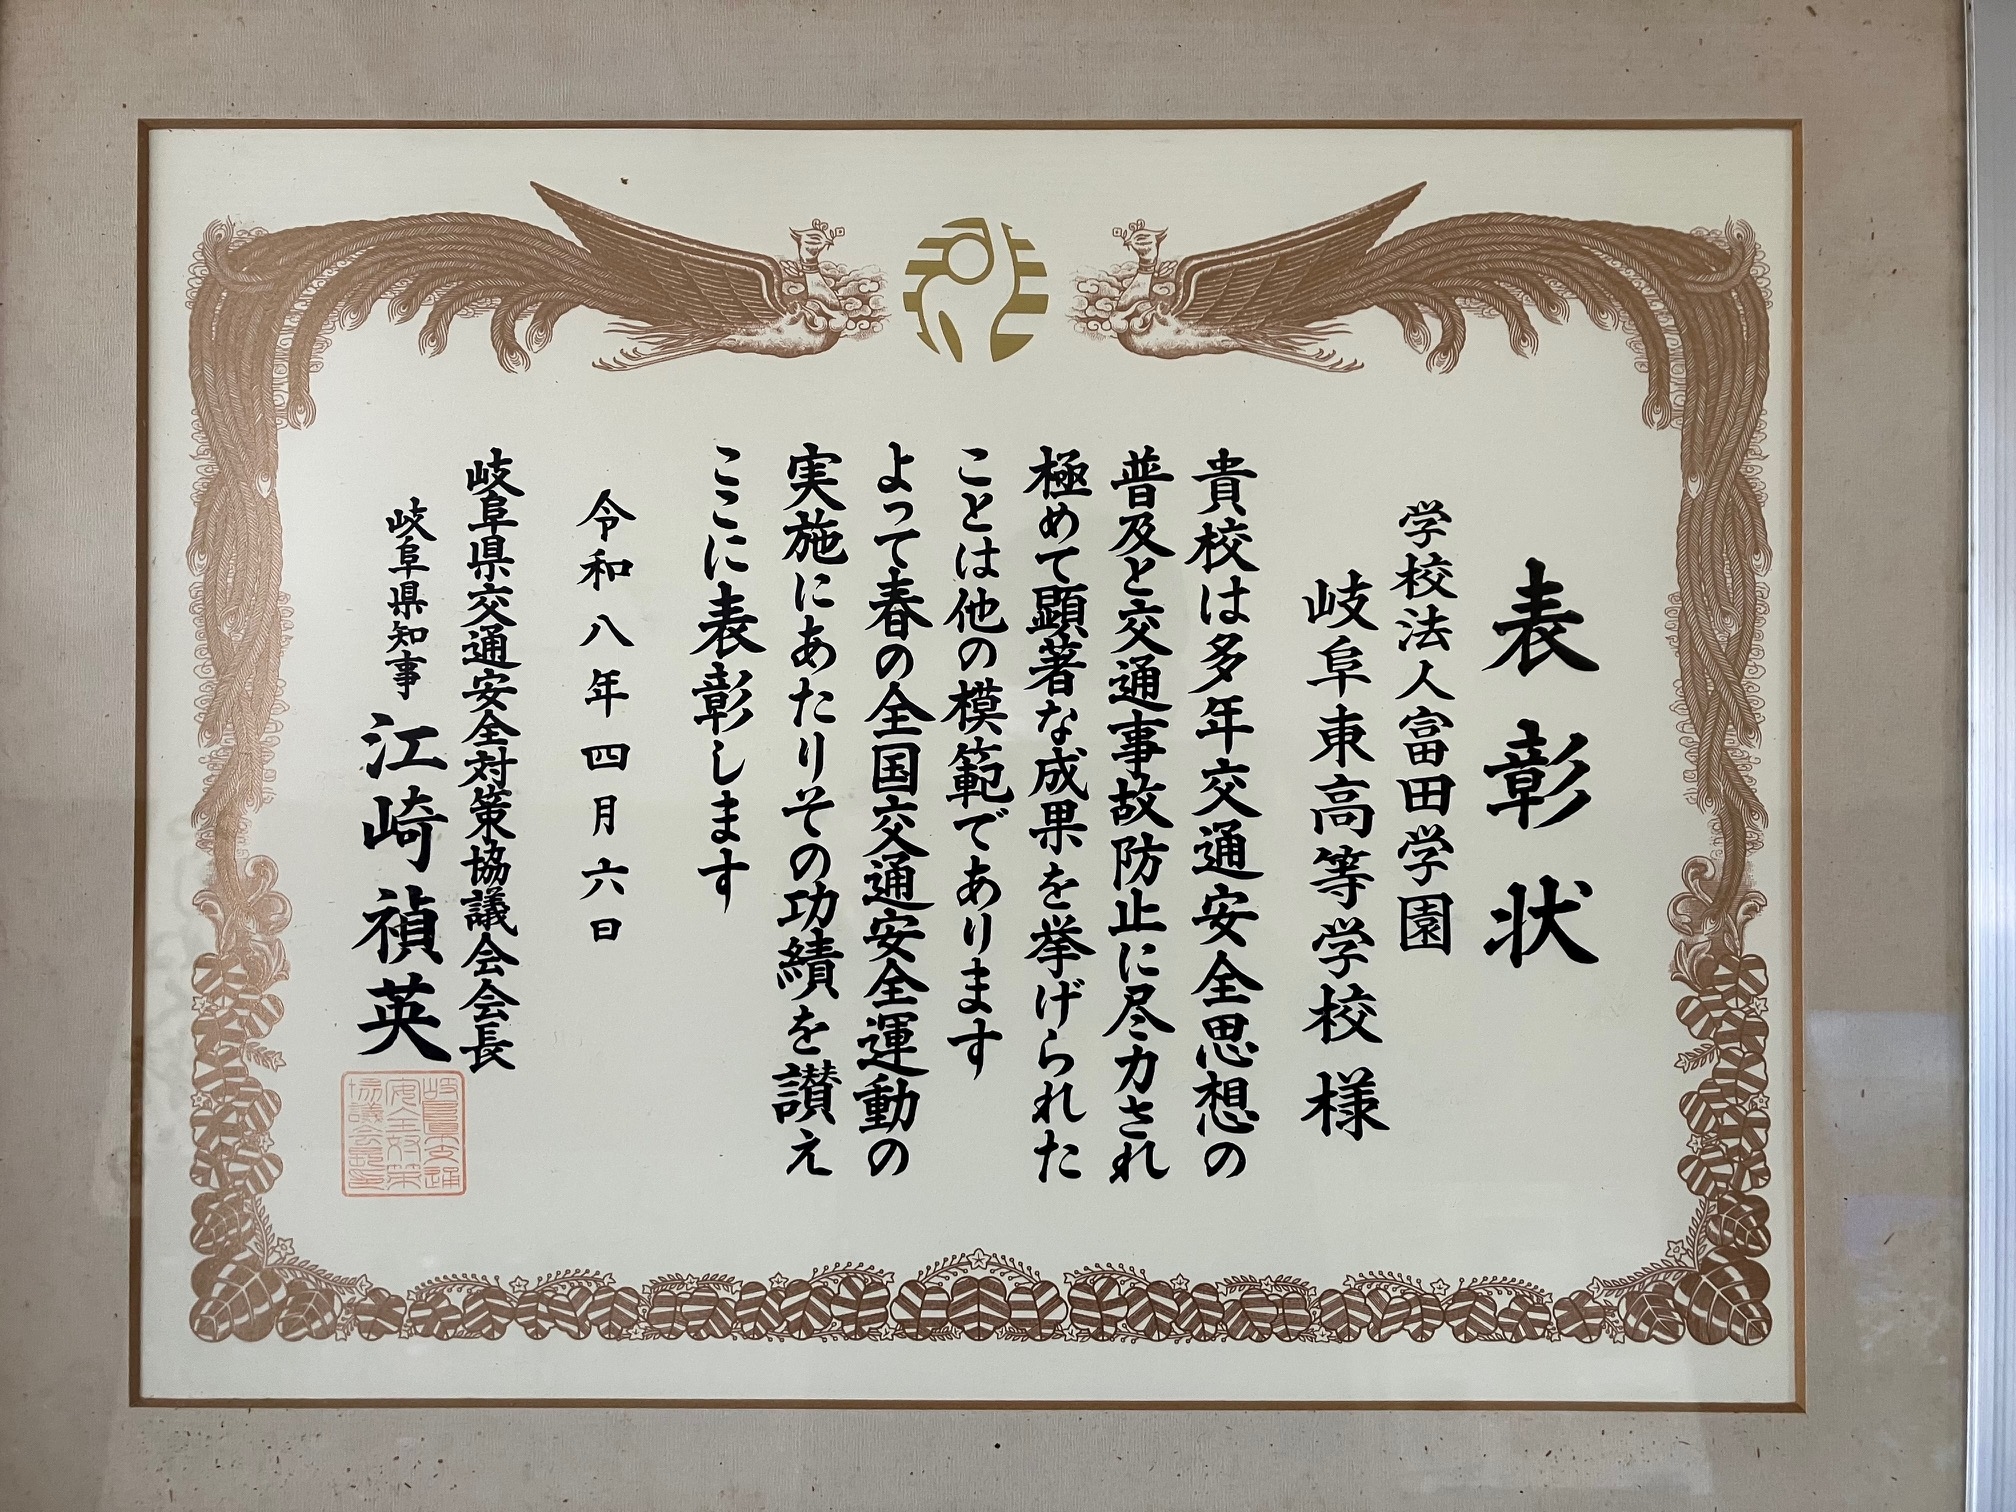 表彰状
学校法人富田学園
岐阜東高等学校様
貴校は多年交通安全思想の
普及と交通事故防止に尽力され
極めて顕著な成果を挙げられた
ことは他の模範であります
よって春の全国交通安全運動の
実施にあたりその功績を讃え
ここに表彰します
令和八年四月六日
岐阜県交通安全対策協議会会長
岐阜県知事 江崎禎英
岐阜県交通
安全対策
協議会長印